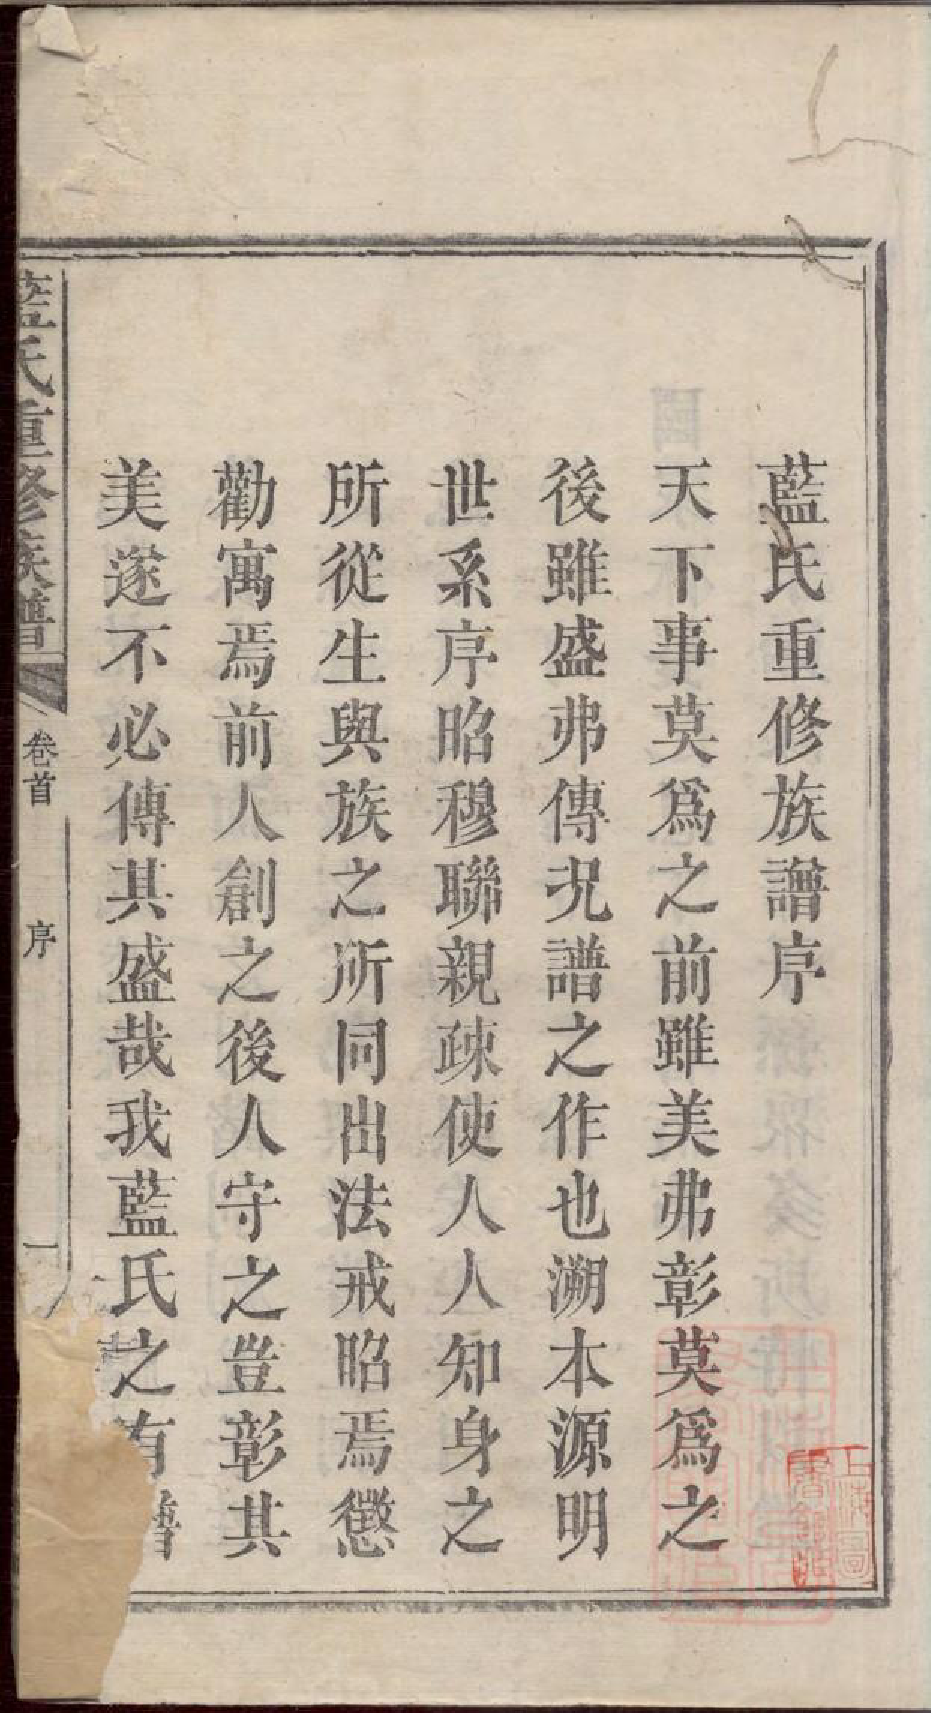 藍氏重修族譜序
天下事莫爲之前雖美弗彰莫爲之
後雖盛弗傳況譜之作也溯本源明
世系序昭穆聯親疎使人人知身之
所從生與族之所同出法戒昭焉懲
勸寓焉前人創之後人守之豈彰其
美遂不必傳其盛哉我藍氏之有譜
藍氏重修族譜
卷首
序
一